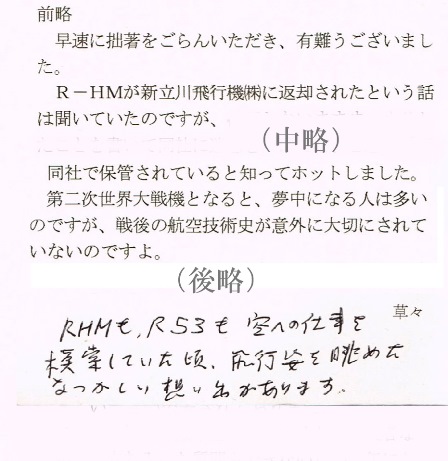 前略
早速に拙著をごらんいただき、有難うございまし
た。
R－HMが新立川飛行機㈱に返却されたという話
は聞いていたのですが、
（中略）
同社で保管されていると知ってホットしました。
第二次世界大戦機となると、夢中になる人は多い
のですが、戦後の航空技術史が意外に大切にされて
いないのですよ。
（後略）
草々
RHMも、R53も 空への仕事を
模索していた頃、飛行姿を眺めた
なつかしい想い出があります。